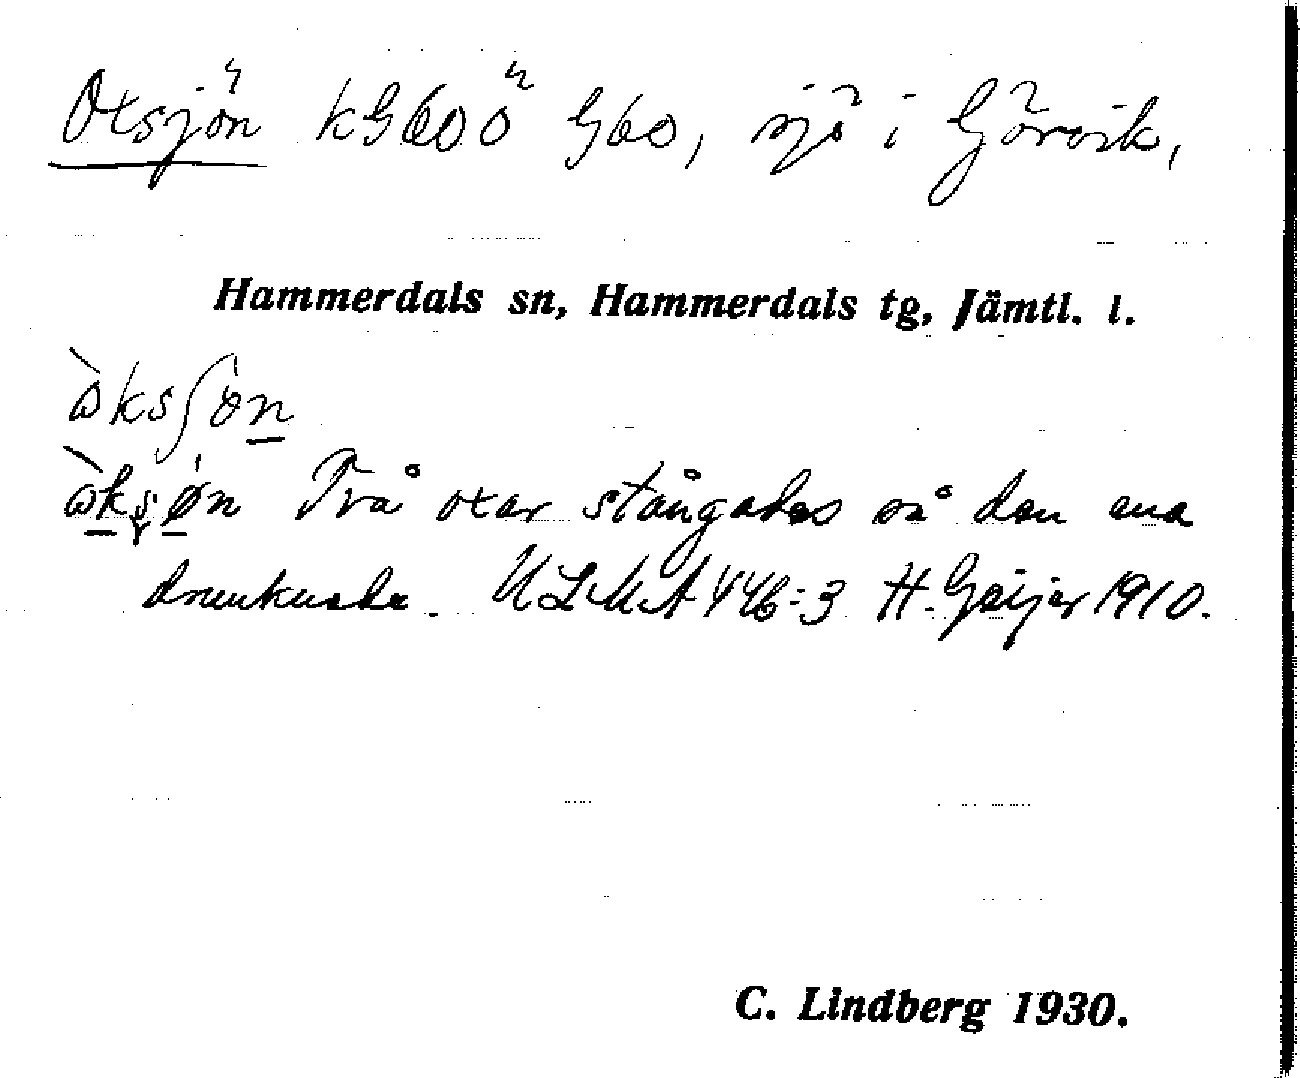 Oxsjön kG60ö G60, sjö i Görvik,
Hammerdals sn, Hammerdals tg, Jämtl. l.
Två oxar stångades så den ena
drunknade. ULMA 446:3 H. Geijer 1910.
C. Lindberg 1930.